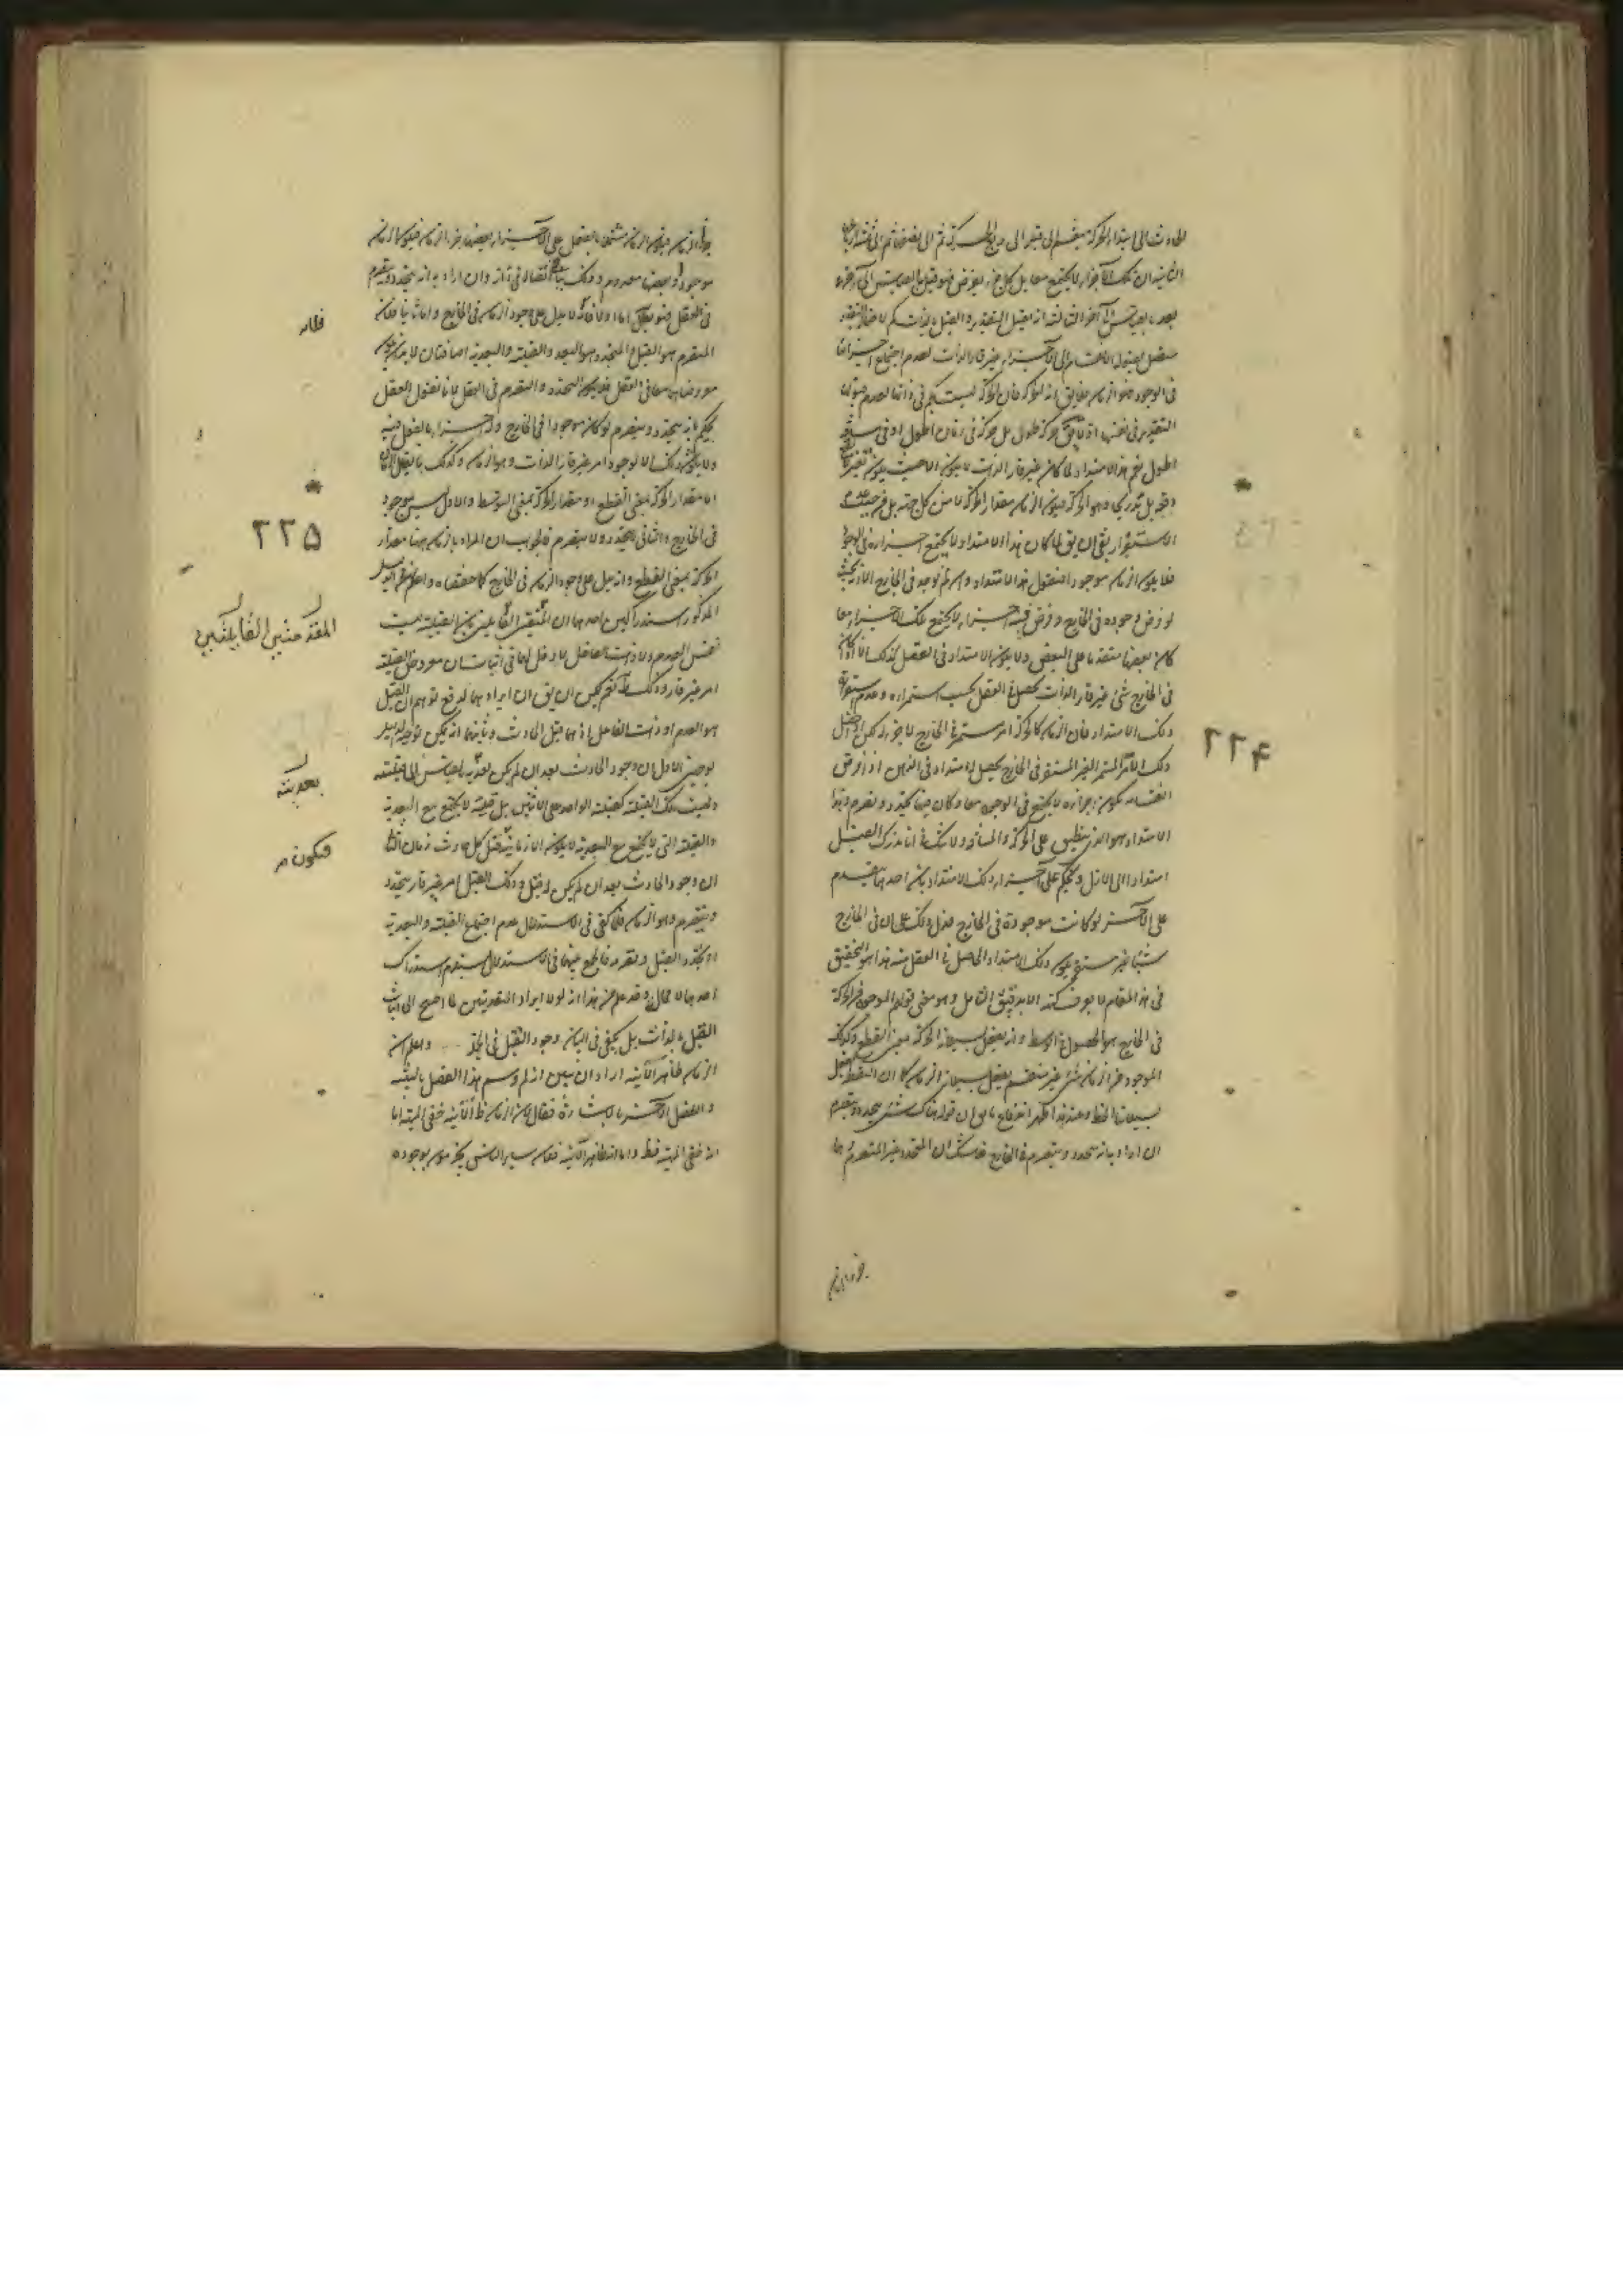 الحادث الى ابتداء الحركة ينقسم الى قبل الى ربع الحركة ثم الى نصفها ثم الى
الثانية ان تلك الاجزاء لا يجتمع معا بل كل جزء يفرض فهو قبل بالقياس الى آخر
بعد بالقياس الى آخر الثالثة انه يقبل التقدير والقبل بالذات كم
متصل لقبوله الانقسام الى الاجزاء غير قار الذات لعدم اجتماع اجزائها
في الوجود فهو الزمان لا يق انه الحركة فان الحركة ليست بكم في ذاتها لعدم قبول
التقدير في نفسها اذ لا يق حركة طول بل حركة في زمان اطول او في مسافة
اطول نعم هذا الامتداد لما كان غير قار الذات لا يكون الا حيث يكون تغير لا
دفعة بل تدريجي وهو الحركة فيكون الزمان مقدار الحركة لا من كل جهة بل من حيث عدم
الاستقرار بقي ان يق لما كان هذا الامتداد لا يجتمع اجزاؤه في الوجود
فلا يكون الزمان موجودا فنقول هذا الامتداد وان لم يوجد في الخارج الا انه بحيث
لو فرض وجوده في الخارج وفرض فيه اجزاء لا يجتمع تلك الاجزاء معا
كان بعضها متقدما على البعض ولا يكون الامتداد في العقل كذلك الا اذا كان
في الخارج شئ غير قار الذات يحصل في العقل بحسب استمراره وعدم استقراره
ذلك الامتداد فان الزمان كالحركة امر مستمر في الخارج لا جزء له لكن اذا حصل
ذلك الامر المستمر الغير المستقر في الخارج يحصل له امتداد في الذهن اذا فرض
انقسامه تكون اجزاؤه لا يجتمع في الوجود معا وكان فيها تجدد وتصرم وهذا
الامتداد هو الذي ينطبق على الحركة والمسافة ولا شك في انا ندرك القبل
امتدادا الى الازل ونحكم على اجزاء ذلك الامتداد بان احدهما يتقدم
على الآخر لو كانت موجودة في الخارج فدل ذلك على ان في الخارج
شيئا غير مستقر يكون ذلك الامتداد الحاصل في العقل منه هذا هو التحقيق
في هذا المقام لا يعرف كنهه الا بدقيق التامل وهو معنى قولهم الموجود من الحركة
في الخارج هو الحصول في الوسط وانه يفعل بسيلانه الحركة بمعنى القطع وكذلك
الموجود من الزمان شئ غير منقسم يفعل بسيلانه الزمان كما ان النقطة تفعل
بسيلانها الخط وعند هذا ظهر اندفاع ما يق ان قوله هناك شئ يتجدد ويتصرم
ان اراد به انه يتجدد ويتصرم في الخارج فلا شك ان المتجدد غير المتصرم
جزء الزمان
٢٢۴
جزءا الزمان فيكون الزمان مشتملا بالفعل على الاجزاء بعضها جزء الزمان فيكون الزمان
موجودا وبعضها معدوم وذلك ينافي اتصاله في ذاته وان اراد به انه يتجدد ويتصرم
في العقل فهو بط اما اولا فلانه لا يدل على وجود الزمان في الخارج واما ثانيا فلان
المتصرم هو القبل والمتجدد هو البعد والقبلية والبعدية اضافتان لا بد ان يكون
معروضاهما معا في العقل فلا يكون التجدد والتصرم في العقل لانا نقول العقل
يحكم بانه يتجدد ويتصرم لو كان موجودا في الخارج وله اجزاء بالفعل فيه
ولا يكون كذلك الا لوجود امر غير قار الذات وهو الزمان وكذلك ما يقال الزمان
اما مقدار الحركة بمعنى القطع او مقدار الحركة بمعنى التوسط والاول ليس بموجود
في الخارج والثاني لا يتجدد ولا يتصرم فالجواب ان المراد بالزمان ههنا مقدار
الحركة بمعنى القطع وانه يدل على وجود الزمان في الخارج كما حققناه واعلم ان في الدليل
المذكور استدراكين احدهما ان المقدمتين القائلتين بان القبلية ليست
نفس العدم ولا ذات الفاعل لا دخل لها في اثبات ان معروض القبلية
امر غير قار وذلك ظ نعم يمكن ان يق ان ايرادهما لدفع توهم ان القبل
هو العدم او ذات الفاعل اذ هما قبل الحادث وثانيهما انه يمكن توجيه الدليل
بوجهين الاول ان وجود الحادث بعد ان لم يكن بعديته بالقياس الى قبلية
وليست تلك القبلية كقبلية الواحد على الاثنين بل قبلية لا يجتمع مع البعدية
والقبلية التي لا يجتمع مع البعدية لا يكون الا زمانية فقبل كل حادث زمان الثاني
ان وجود الحادث بعد ان لم يكن له قبل وذلك القبل امر غير قار يتجدد
ويتصرم وهو الزمان فلما كفى في الاستدلال عدم اجتماع القبلية والبعدية
او تجدد القبل وتصرمه فالجمع بينهما في الاستدلال يستلزم استدراك
احدهما لا محالة وقد علم من هذا انه لولا ايراد المقدمتين لما احتيج الى اثبات
القبل بالذات بل يكفي في البيان وجود القبل في الجملة واعلم ان
الزمان ظاهر الآنية اراد ان يبين انه لم وسم هذا الفصل بالتنبيه
والفصل الآخر بالاشارة فقال لان الزمان ظ الآنية خفي المهية اما
انه خفي المهية فظ واما انه ظاهر الآنية فلان سائر الناس يجزمون بوجوده
فلانه
٢٢۵
المقدمتين القائلتين
بعديته
فيكون م